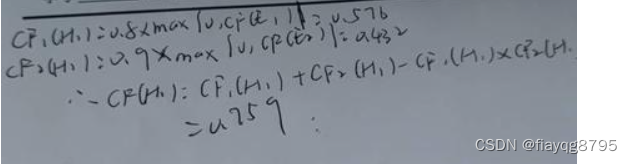 CF₁(H₁)=0.8×max{0,CF(E₁)}=0.576
CF₂(H₁)=0.9×max{0,CF(E₂)}=0.432
∴ CF(H₁)=CF₁(H₁)+CF₂(H₁)-CF₁(H₁)×CF₂(H₁
=0.759
CSDN @fiayqg8795